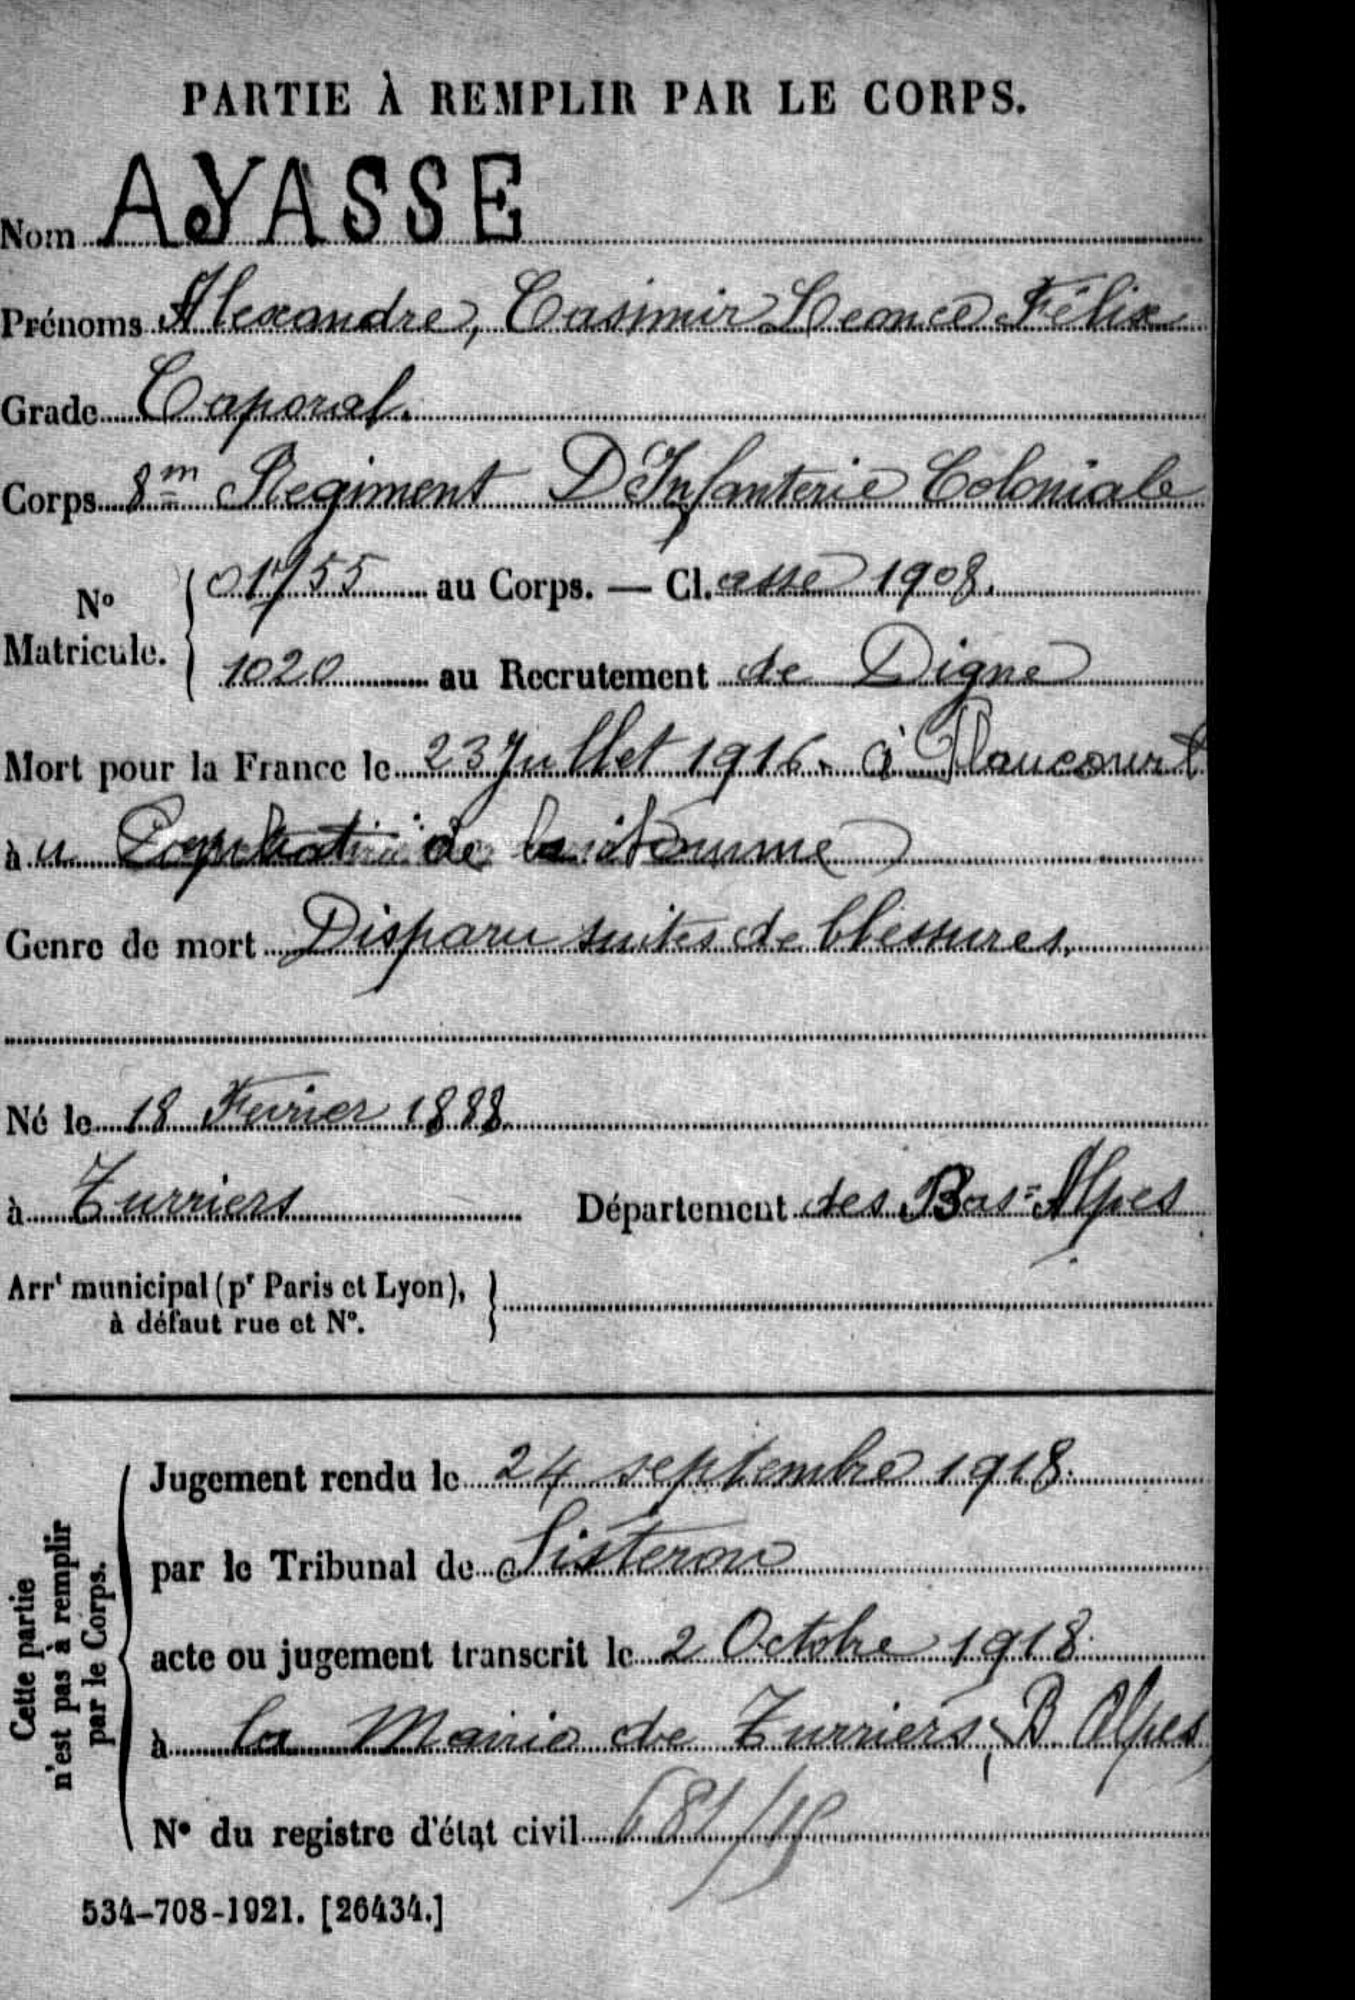 PARTIE À REMPLIR PAR LE CORPS.
Nom AYASSE
Prénoms Alexandre, Casimir Leonce Félix
Grade Caporal.
Corps 8m Regiment D'Infanterie Coloniale
N° Matricule. { 01755 au Corps. — Cl. asse 1908.
1020 au Recrutement de Digne
Mort pour la France le 23 Juillet 1916. à Flaucourt
à de la Somme
Genre de mort Disparu suites de blessures.
Né le 18 Fevrier 1888.
à Turriers Département des Bas=Alpes
Arrt municipal (pr Paris et Lyon), à défaut rue et N°. }
Cette partie n'est pas à remplir par le Corps.
Jugement rendu le 24 septembre 1918.
par le Tribunal de Sisteron
acte ou jugement transcrit le 2 Octobre 1918.
à la Mairie de Turriers, B. Alpes
N° du registre d'état civil 681/18
534-708-1921. [26434.]